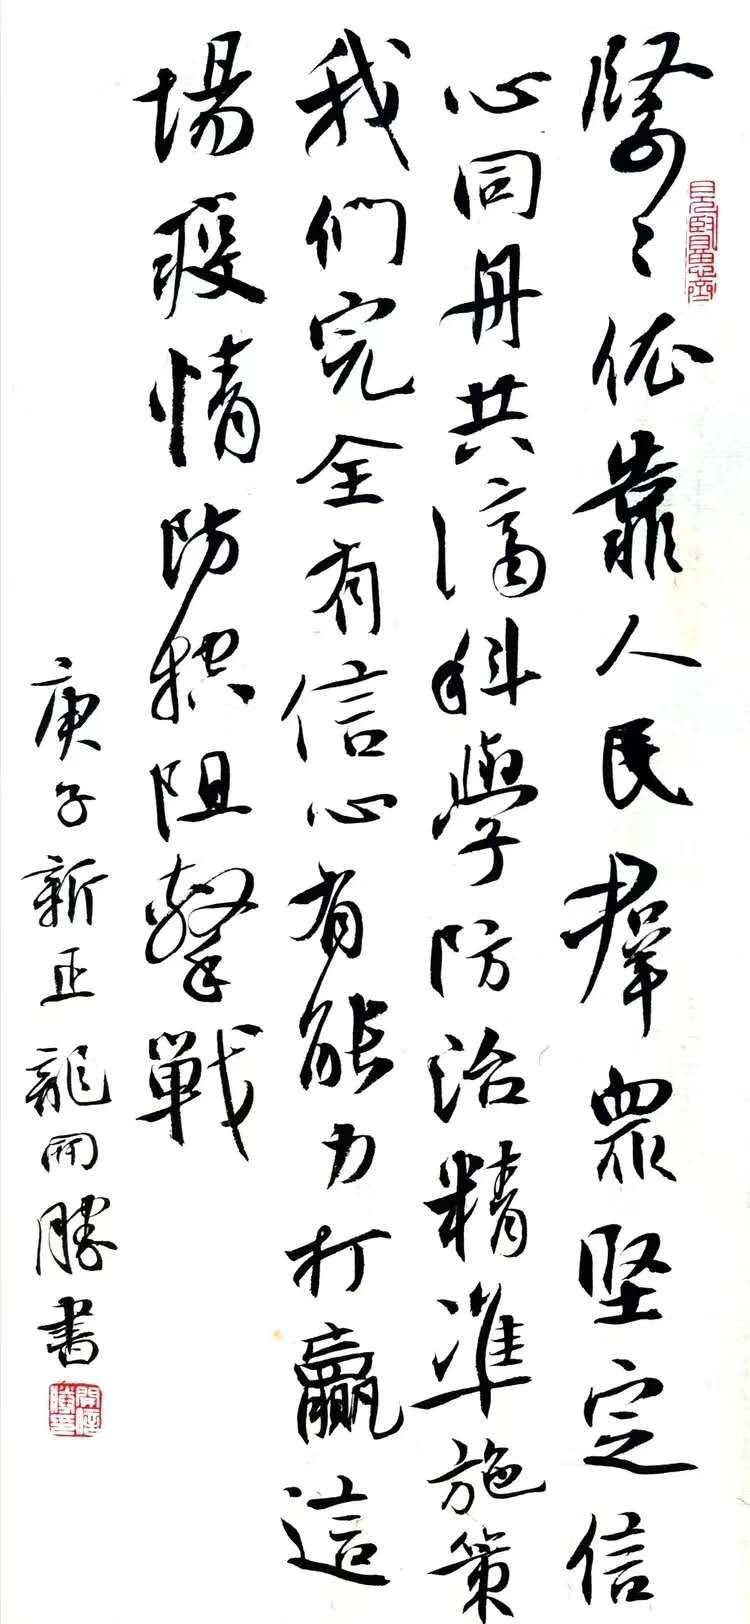 緊〻依靠人民群眾堅定信
心同舟共濟科學防治精準施策
我們完全有信心有能力打贏這
場疫情防控阻擊戰
庚子新正龍開勝書
見賢思齊